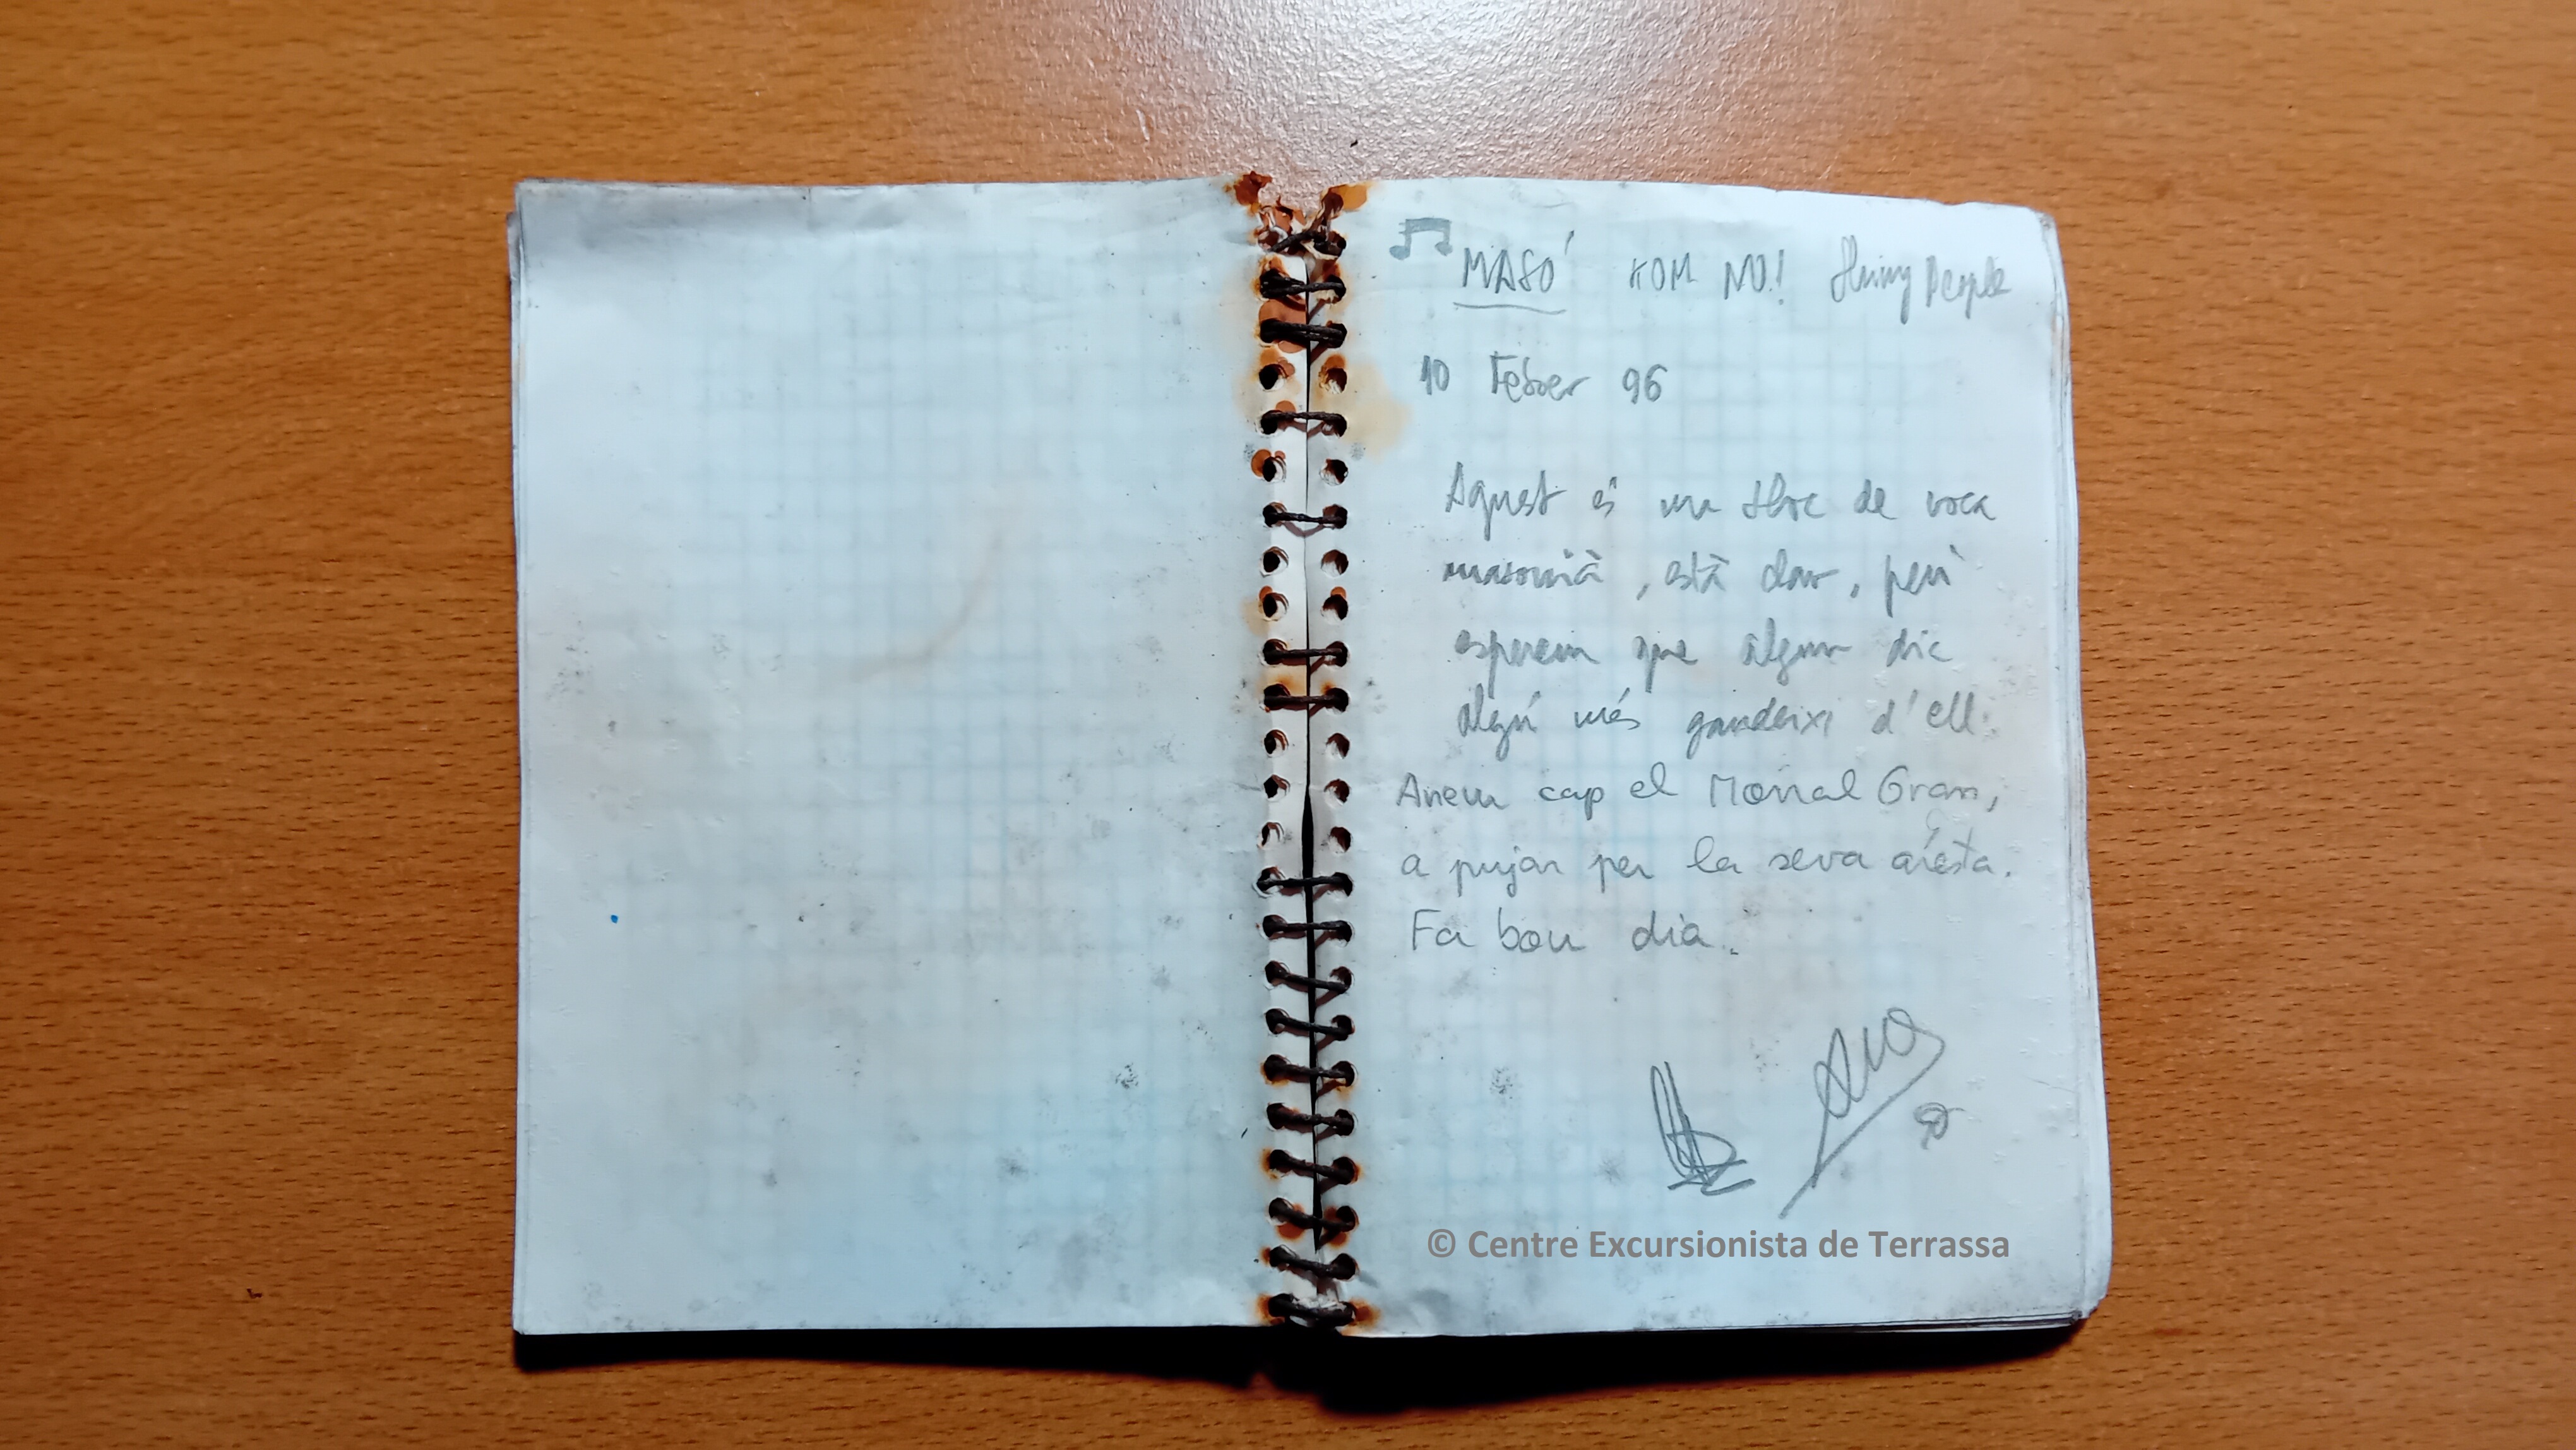 MASÓ KOM NO! Shiny People
10 Febrer 96
Aquest és un lloc de roca
masonià, està clar, però
esperem que algun dia
algú més gaudeixi d'ell.
Anem cap el Morral Gran,
a pujar per la seva aresta.
Fa bon dia.
© Centre Excursionista de Terrassa